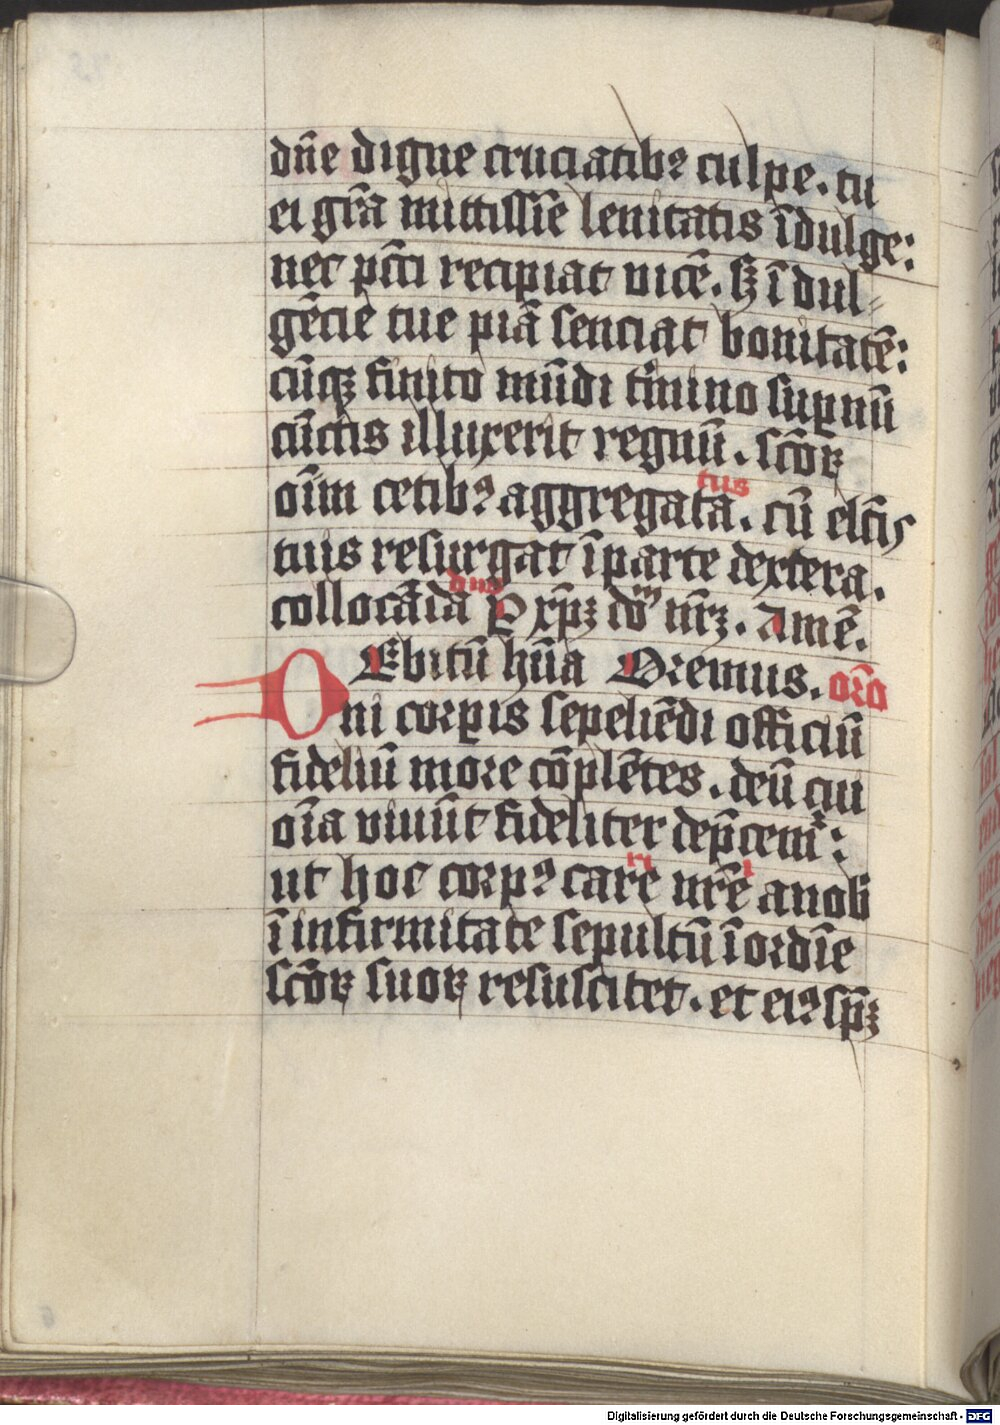 dn̄e digne cruciatibꝯ culpe. tu
ei gr̄a mittissīe lenitatis īdulge:
nec pcc̄i recipiat vicē. sꝫ īdul⸗
gēcie tue piā senciat bonitatē:
cūqꝫ finito mūdi tīmino suꝑnū
cūctis illuxerit regnū. sc̄oꝝ
oīm cetibꝯ aggregata. cū elc̄is
tus
tuis resurgat īparte dextera.
collocāda P xp̄ꝫ doᷟ nr̄ꝫ. Amē.
dus
DEbitū hūa Oremus. or̄o
ni corꝑis sepeliēdi officiū
fideliū more cōplētes. deū cui
oīa viuūt fideliter dep̄cemᷣ:
ut hoc corpꝯ carē nr̄e anob
ri i
īinfirmitate sepultū īordīe
sc̄oꝝ suoꝝ resuscitet. et eiꝯ sp̄ꝫ
Digitalisierung gefördert durch die Deutsche Forschungsgemeinschaft - DFG